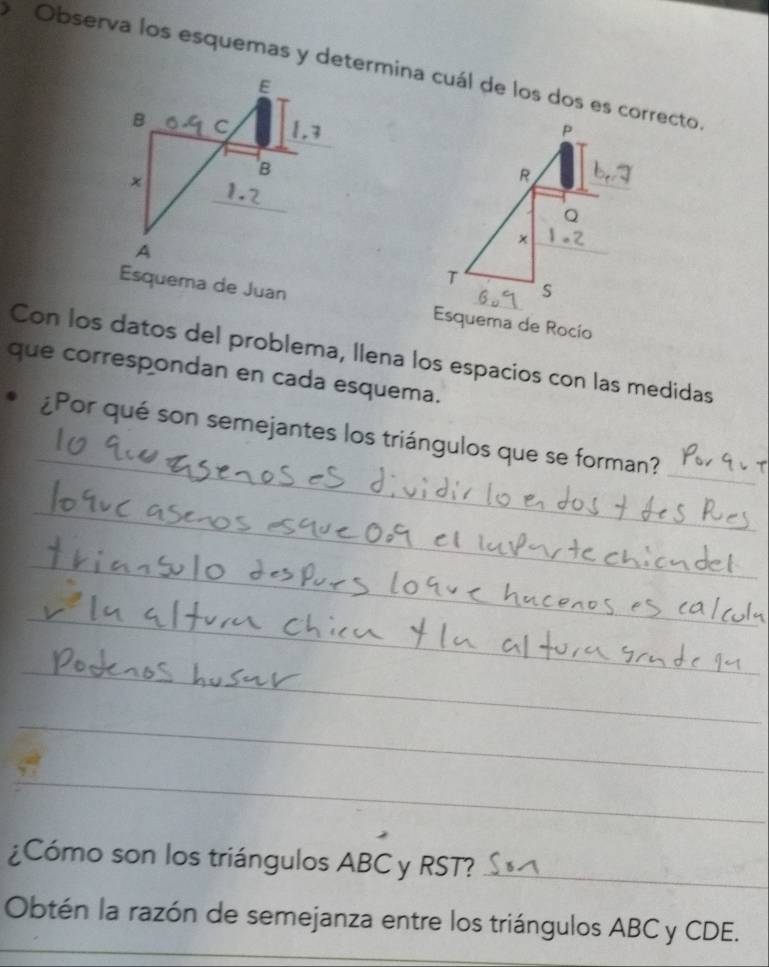 Observa los esquemas y determina cuál de los dos es correcto.
E
B 0.9 C 1.7
B
x
1.2
A
Esquema de Juan
P
R
Q
x 1.2
T
S
Esquema de Rocío
Con los datos del problema, llena los espacios con las medidas
que correspondan en cada esquema.
• ¿Por qué son semejantes los triángulos que se forman? Porque
lo que asenos es dividirlo en dos y des Pues
loque asenos esque 0.9 el la parte chica del
triangulo despues loque hacenos es calcula
r la altura chica y la altura grande
Podenos husar
¿Cómo son los triángulos ABC y RST? Son
Obtén la razón de semejanza entre los triángulos ABC y CDE.